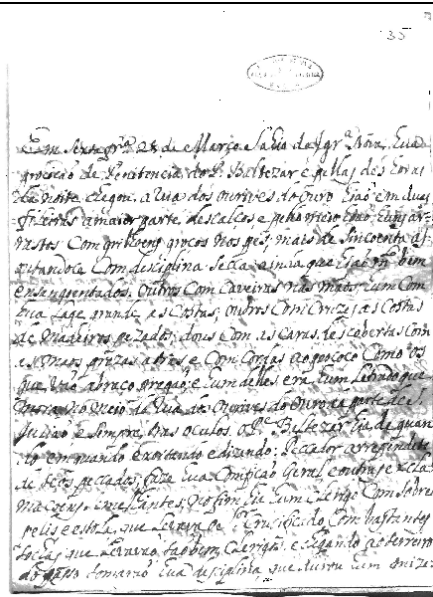 35
Em Sexta frª 28 de Março Sahio da Igrª Nova, hua
procição de Penitencia do P. Baltezar e pellas des horas
da noite chegou a Rua dos ourives do ouro hião em duas
fileiras a maior parte descalços e pello meio hião
rastos Com grilhoens grocos nos pes, mais de sincoenta
Com disciplina secca, ainda que hião bem
ensanguentados, outros Com Caveiras nas maos, hum Com
hua Lage grande as Costas, outros Com Cruzes as Costas
de Madeiros pezados, dous Com as Caras descobertas Com
as maos prezas atras e Com Cordas ao pescoço Como os
que vão a e hum delles era hum Letrado que
mora no meio da Rua dos ourives do ouro da parte de S.
Julião e sempre tras oculos. o Pe. Baltezar hia de quan
do em quando exortando e dizendo: Peccador arrependete
de teos peccados, faze hua Confição Geral e outras excla
maçoens no fim hia hum Clerigo Com sobre
pelis e estola, que levava o Sr. Crucificado, Com bastantes
tochas que levavão tãobem Clerigos, e chegando ao terreiro
do paço tomarão hua disciplina que durou hum